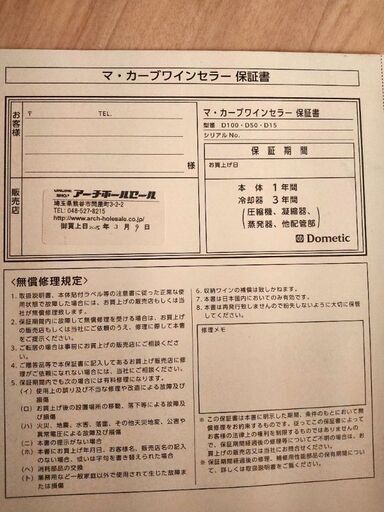 マ・カーブワインセラー 保証書
お客様
〒
TEL.
販売店
アーチホールセール
埼玉県熊谷市問屋町3-2-2
TEL: 048-527-8215
www.arch-holesale.co.jp/
御買上日2015年3月9日
マ・カーブワインセラー 保証書
型番 D100・D50・D15
シリアルNo.
保証期間
お買上げ日
本体 1年間
冷却器 3年間
(圧縮機、凝縮器、
蒸発器、他配管部)
Dometic
<無償修理規定>
1. 取扱説明書、本体貼付ラベル等の注意書に従った正常な使
用状態で故障した場合には、お買上げの販売店もしくは当
社が無償修理致します。
2. 保証期間内に故障して無償修理を受ける場合は、お買上げ
の販売店もしくは当社にご依頼のうえ、修理に際して本書
をご提示ください。
3. ご転居の場合は事前にお買上げの販売店にご相談くださ
い。
4. ご贈答品等で本保証書に記入してあるお買上げ販売店に修
理が依頼できない場合には、当社にご相談ください。
5. 保証期間内でも次の場合には有料修理になります。
(イ) 使用上の誤り及び不当な修理や改造による故障及び
損傷
(ロ) お買上げ後の設置場所の移動、落下等による故障及
び損傷
(ハ) 火災、地震、水害、落雷、その他天災地変、公害や
異常電圧による故障及び損傷
(ニ) 本書の提示がない場合
(ホ) 本書にお買上げ年月日、お客様名、販売店名の記入
のない場合、或いは字句を書き替えられた場合
(ヘ) 消耗部品の交換
(ト) 業務用など一般家庭以外で使用されて生じた故障ま
たは損傷
6. 収納ワインの補償は致しかねます。
7. 本書は日本国内においてのみ有効です。
8. 本書は再発行致しませんので紛失しないように大切に保管
してください。
修理メモ
※この保証書は本書に明示した期間、条件のもとにおいて無
償修理をお約束するものです。従ってこの保証書によって
お客様の法律上の権利を制限するものではありませんので、
保証期間経過後の修理等についてご不明の場合は、お
買上げの販売店または当社にお問い合わせください。
※保証期間経過後の修理、補修用性能部品の保有期間につい
て、詳しくは取扱説明書をご覧ください。